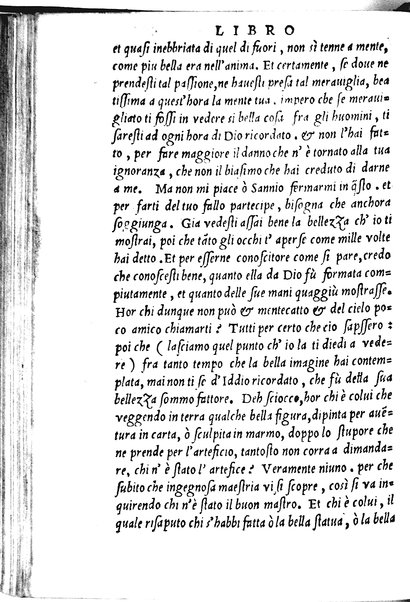 LIBRO
et quasi inebbriata di quel di fuori, non si tenne a mente,
come piu bella era nell'anima. Et certamente, se doue ne
prendesti tal passione, ne hauesti presa tal merauiglia, bea
tissima a quest'hora la mente tua. impero che se meraui-
gliato ti fossi in vedere si bella cosa fra gli huomini, ti
saresti ad ogni hora di Dio ricordato. & non l'hai fat-
to, per fare maggiore il danno che n'è tornato alla tua
ignoranza, che non il biasimo che hai creduto di darne
a me. Ma non mi piace ò Sannio fermarmi in q̃sto. et
per farti del tuo fallo partecipe, bisogna che anchora
soggiunga. Gia vedesti assai bene la bellezza ch'io ti
mostrai, poi che tãto gli occhi t'aperse come mille volte
hai detto. Et per esserne conoscitore come si pare, credo
che conoscesti bene, quanto ella da Dio fù formata com-
piutamente, et quanto delle sue mani quaggiù mostrasse.
Hor chi dunque non può & mentecatto & del cielo po-
co amico chiamarti? Tutti per certo che cio sapssero:
poi che (lasciamo quel punto ch'io la ti diedi a vede-
re) fra tanto tempo che la bella imagine hai contem-
plata, mai non ti se d'Iddio ricordato, che fù della sua
bellezza sommo fattore. Deh sciocco, hor chi è colui che
veggendo in terra qualche bella figura, dipinta per auẽ-
tura in carta, ò sculpita in marmo, doppo lo stupore che
ne prende per l'arteficio, tantosto non corra a dimanda-
re, chi n'è stato l'artefice? Veramente niuno. per che
subito che ingegnosa maestria vi si scopre, così si va in-
quirendo chi n'è stato il buon mastro. Et chi è colui, il
quale risaputo chi s'habbi fatta ò la bella statua, ò la bella